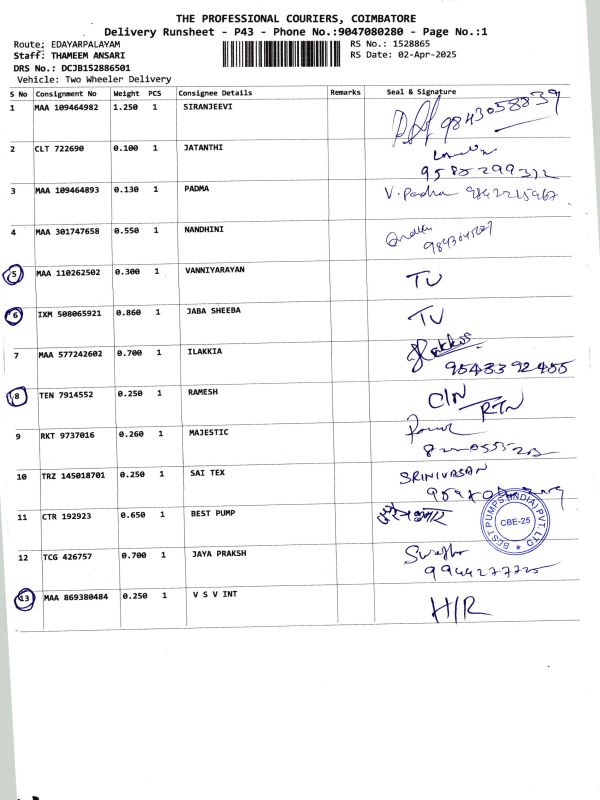 THE PROFESSIONAL COURIERS, COIMBATORE
Delivery Runsheet - P43 - Phone No.:9047080280 - Page No.:1
Route: EDAYARPALAYAM RS No.: 1528865
Staff: THAMEEM ANSARI RS Date: 02-Apr-2025
DRS No.: DCJB152886501
Vehicle: Two Wheeler Delivery
S No Consignment No Weight PCS Consignee Details Remarks Seal & Signature
1 MAA 109464982 1.250 1 SIRANJEEVI 9843058839
2 CLT 722690 0.100 1 JATANTHI
3 MAA 109464893 0.130 1 PADMA V. Padma
4 MAA 301747658 0.550 1 NANDHINI
5 MAA 110262502 0.300 1 VANNIYARAYAN TU
6 IXM 508065921 0.860 1 JABA SHEEBA TU
7 MAA 577242602 0.700 1 ILAKKIA
8 TEN 7914552 0.250 1 RAMESH C/N RTN
9 RKT 9737016 0.260 1 MAJESTIC
10 TRZ 145018701 0.250 1 SAI TEX SRINIVASAN
11 CTR 192923 0.650 1 BEST PUMP BEST PUMPS (INDIA) PVT. LTD CBE-25
12 TCG 426757 0.700 1 JAYA PRAKSH
13 MAA 869380484 0.250 1 V S V INT H/R